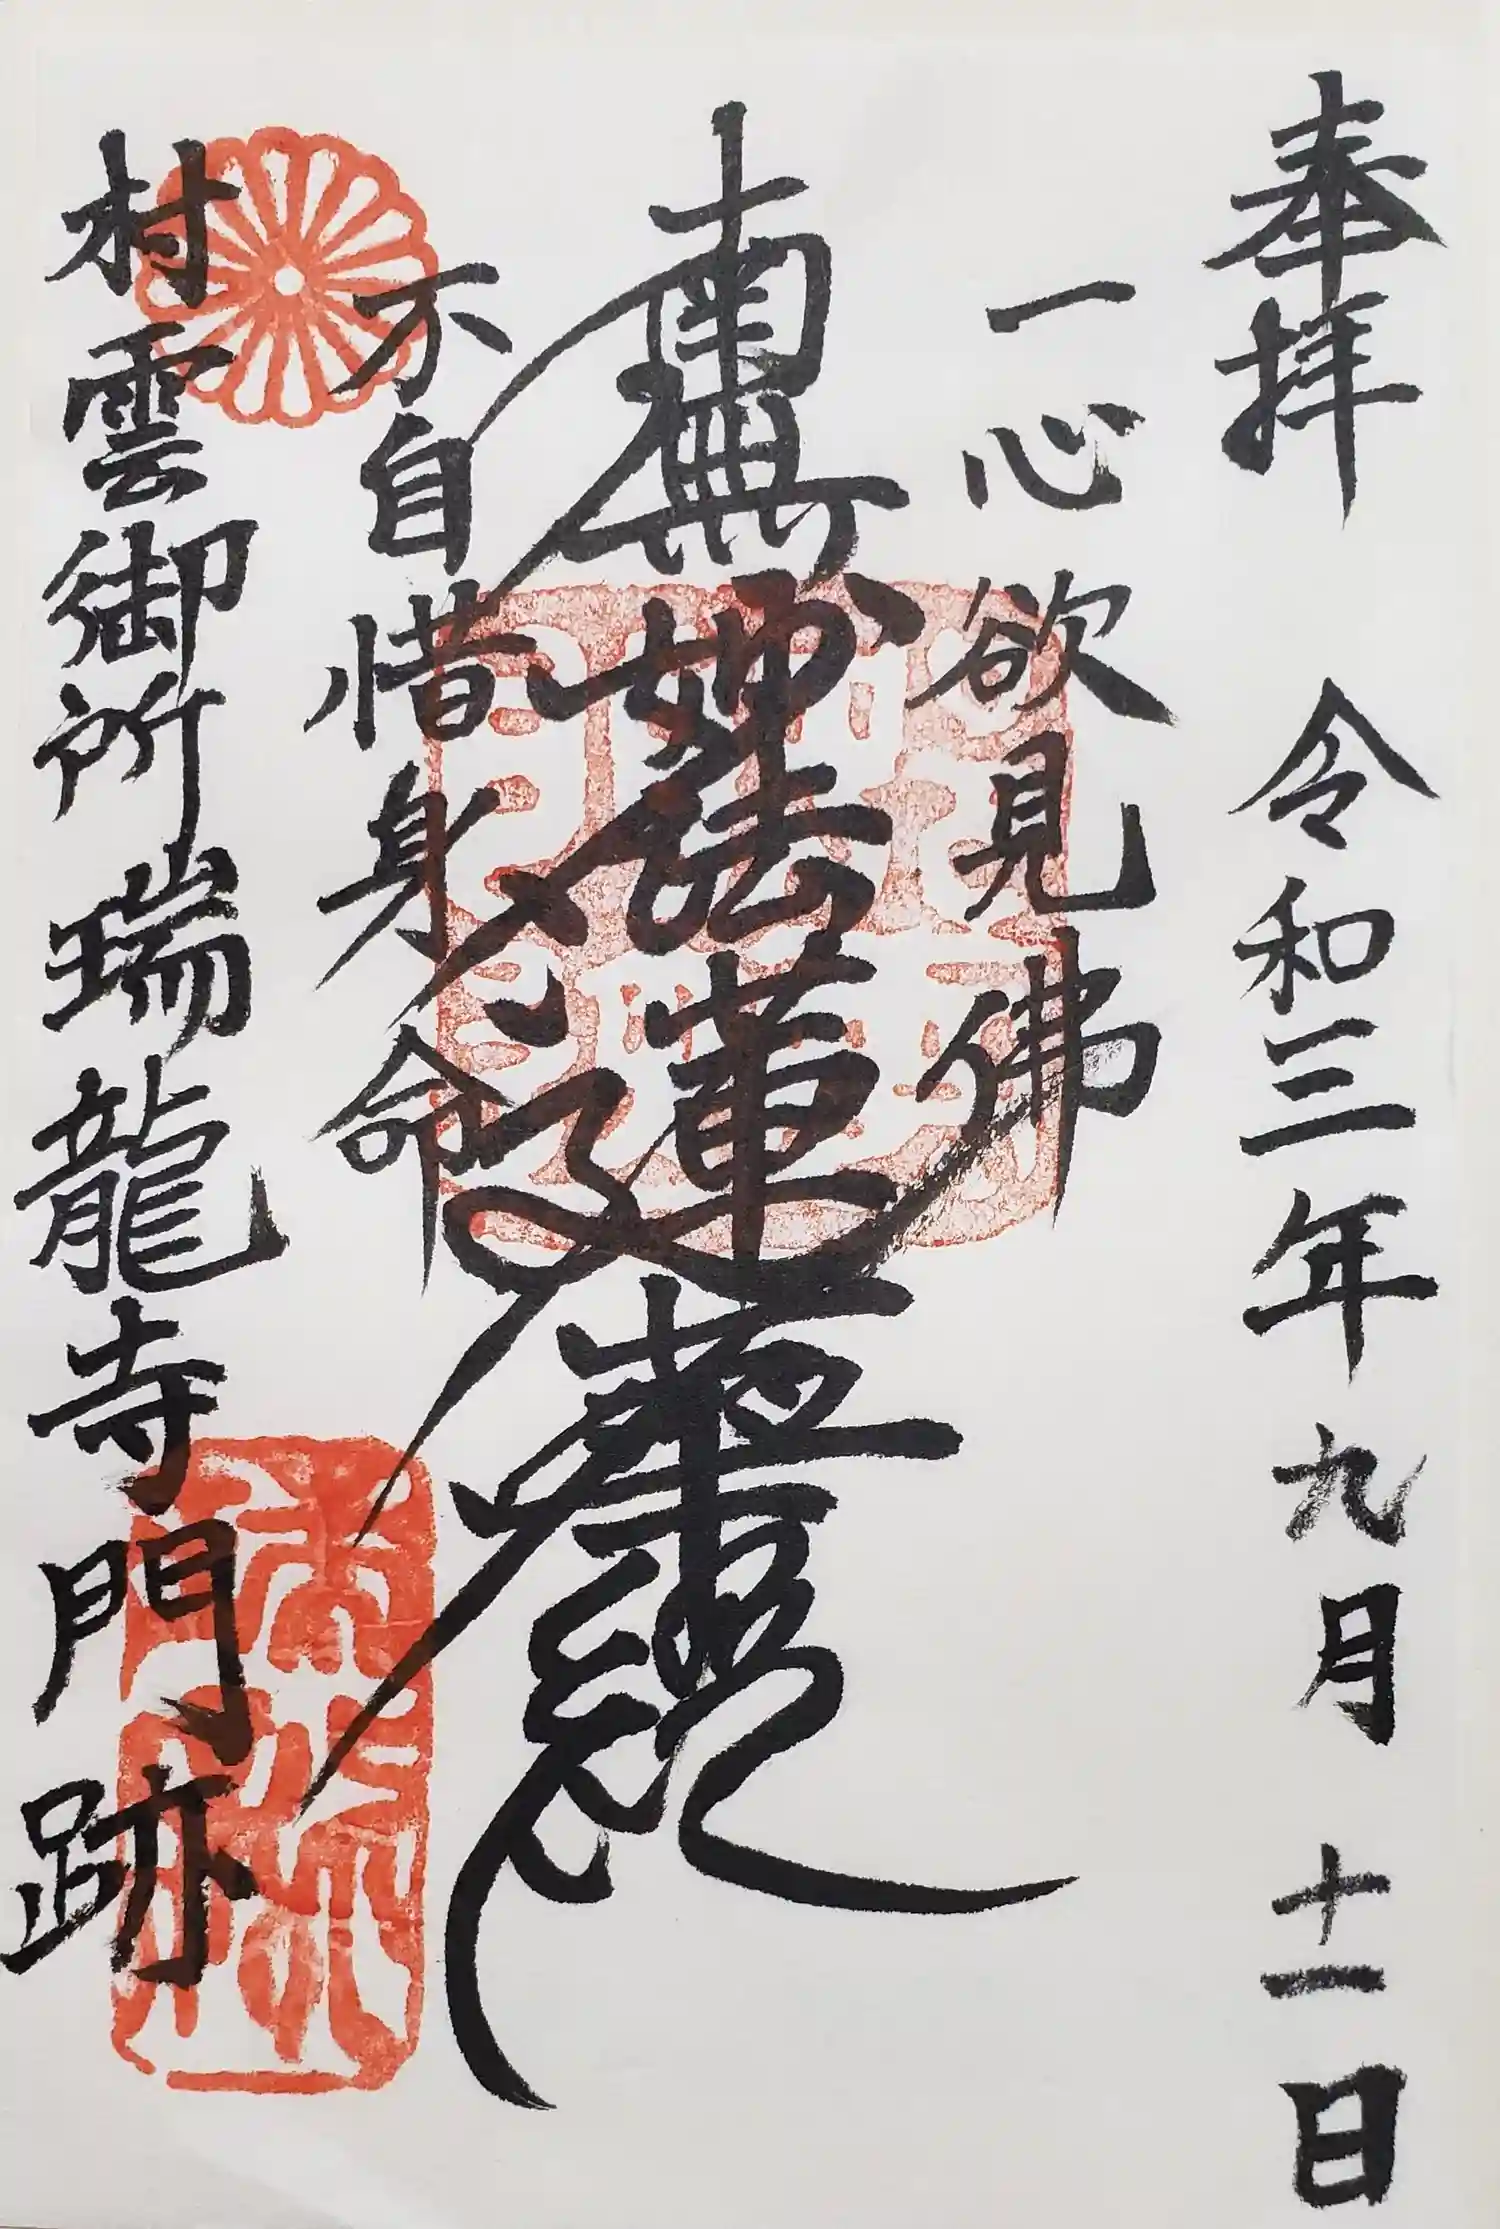 奉拝 令和三年九月十一日
一心欲見佛
南無妙法蓮華経
不自惜身命
村雲御所瑞龍寺門跡